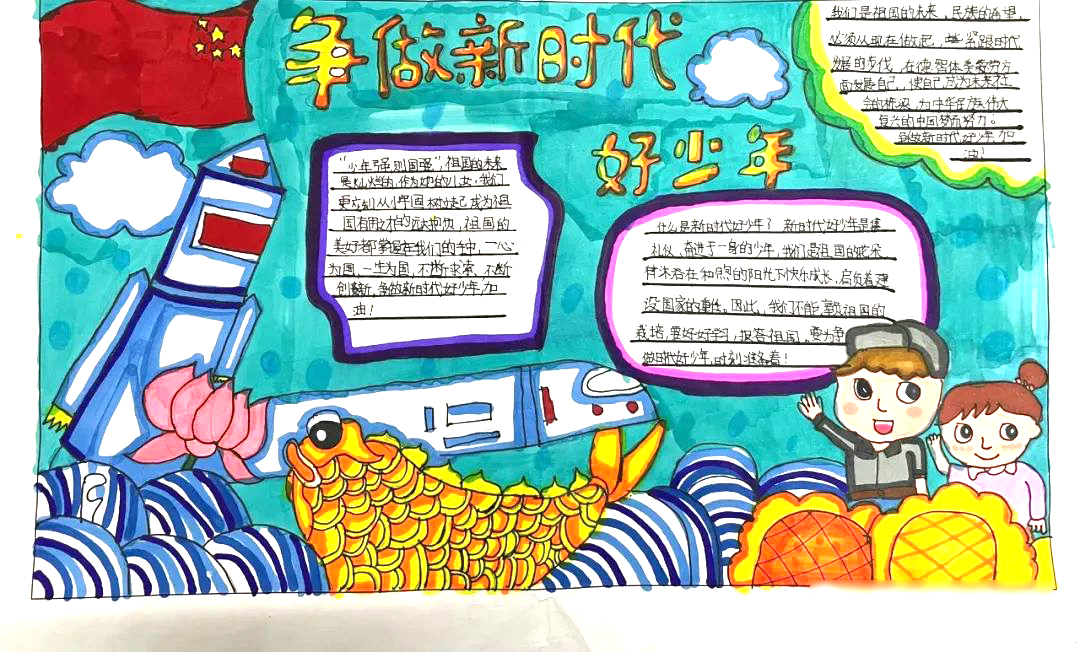 争做新时代
好少年
我们是祖国的未来、民族的希望，
必须从现在做起，紧跟时代
发展的步伐，在德智体美劳方
面发展自己，使自己成为未来社
会的栋梁，为中华民族伟大
复兴的中国梦而努力。
争做新时代好少年，加
油！
“少年强则国强”，祖国的未来
是灿烂的，作为她的儿女，我们
更立刻从小牢固树立起成为祖
国有用之材的远大抱负，祖国的
美好都掌握在我们的手中，一心
为国，一生为国，不断求索，不断
创新，争做新时代好少年，加
油！
什么是新时代好少年？新时代好少年是集
礼仪、奋进于一身的少年，我们是祖国的花朵
沐浴在和煦的阳光下快乐成长，肩负着建
设国家的重任。因此，我们不能辜负祖国的
栽培，要好好学习，报答祖国，要为争
做时代好少年，时刻准备着！